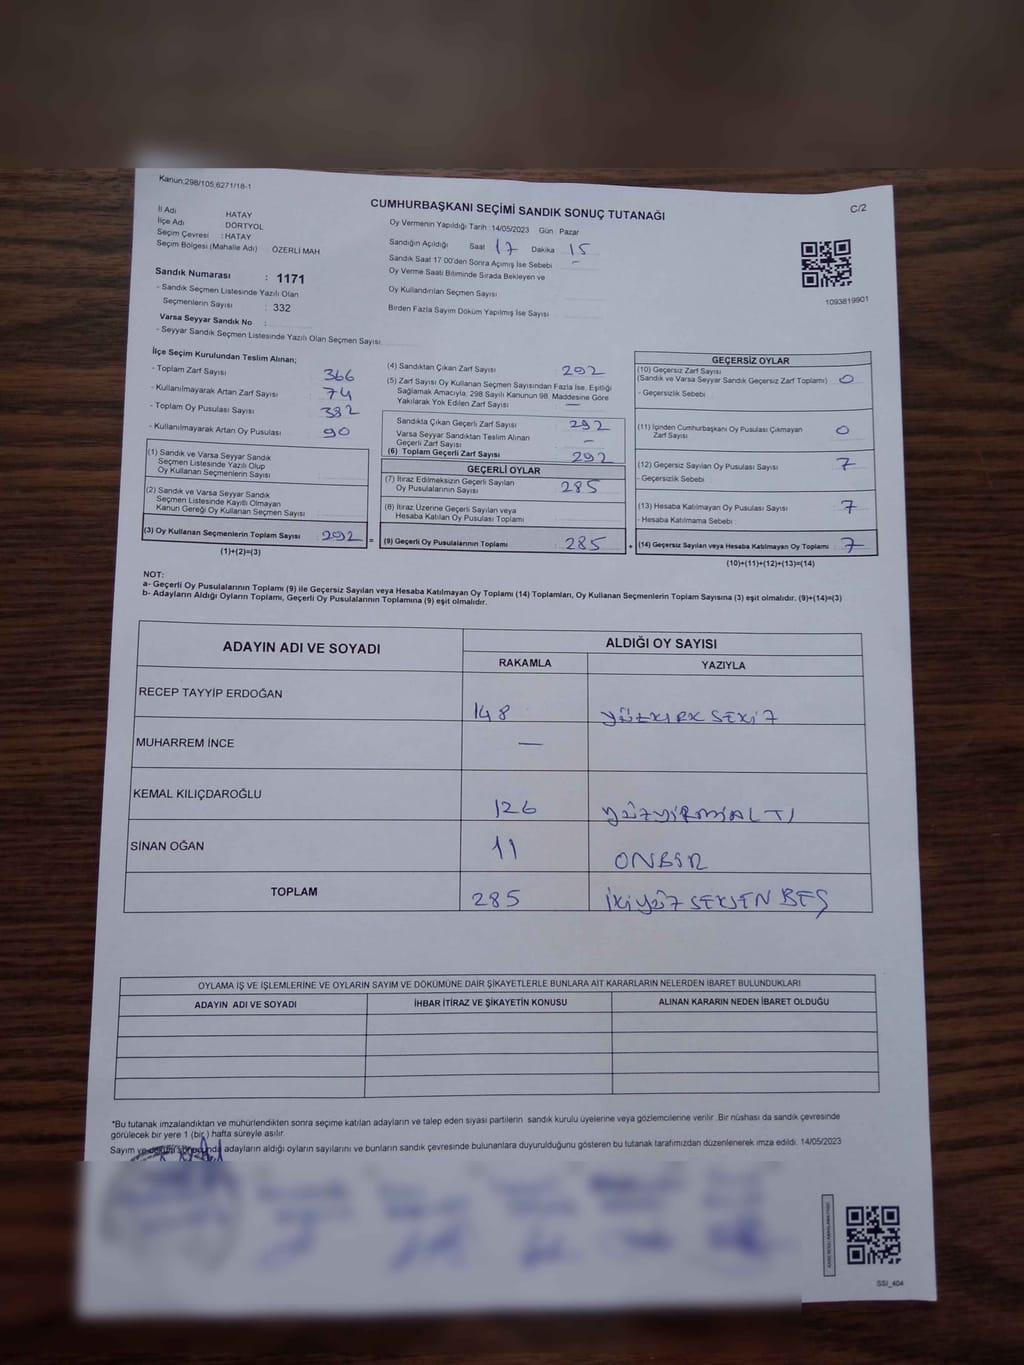 Kanun;298/105;6271/18-1
C/2
CUMHURBAŞKANI SEÇİMİ SANDIK SONUÇ TUTANAĞI
İl Adı HATAY
İlçe Adı DÖRTYOL
Seçim Çevresi : HATAY
Seçim Bölgesi (Mahalle Adı) ÖZERLİ MAH
Oy Vermenin Yapıldığı Tarih : 14/05/2023 Gün : Pazar
Sandığın Açıldığı Saat 17 Dakika 15
Sandık Saat 17:00'den Sonra Açımış İse Sebebi -
Oy Verme Saati Bitiminde Sırada Bekleyen ve
Oy Kullandırılan Seçmen Sayısı
Birden Fazla Sayım Döküm Yapılmış İse Sayısı
1093819901
Sandık Numarası : 1171
- Sandık Seçmen Listesinde Yazılı Olan
Seçmenlerin Sayısı : 332
Varsa Seyyar Sandık No :
- Seyyar Sandık Seçmen Listesinde Yazılı Olan Seçmen Sayısı
İlçe Seçim Kurulundan Teslim Alınan;
- Toplam Zarf Sayısı 366
- Kullanılmayarak Artan Zarf Sayısı 74
- Toplam Oy Pusulası Sayısı 382
- Kullanılmayarak Artan Oy Pusulası 90
(1) Sandık ve Varsa Seyyar Sandık
Seçmen Listesinde Yazılı Olup
Oy Kullanan Seçmenlerin Sayısı
(2) Sandık ve Varsa Seyyar Sandık
Seçmen Listesinde Kayıtlı Olmayan
Kanun Gereği Oy Kullanan Seçmen Sayısı
(3) Oy Kullanan Seçmenlerin Toplam Sayısı : 292 =
(1)+(2)=(3)
(4) Sandıktan Çıkan Zarf Sayısı 292
(5) Zarf Sayısı Oy Kullanan Seçmen Sayısından Fazla İse, Eşitliği
Sağlamak Amacıyla, 298 Sayılı Kanunun 98. Maddesine Göre
Yakılarak Yok Edilen Zarf Sayısı —
Sandıkta Çıkan Geçerli Zarf Sayısı 292
Varsa Seyyar Sandıktan Teslim Alınan
Geçerli Zarf Sayısı -
(6) Toplam Geçerli Zarf Sayısı 292
GEÇERLİ OYLAR
(7) İtiraz Edilmeksizin Geçerli Sayılan
Oy Pusulalarının Sayısı 285
(8) İtiraz Üzerine Geçerli Sayılan veya
Hesaba Katılan Oy Pusulası Toplamı
(9) Geçerli Oy Pusulalarının Toplamı : 285 +
GEÇERSİZ OYLAR
(10) Geçersiz Zarf Sayısı
(Sandık ve Varsa Seyyar Sandık Geçersiz Zarf Toplamı) 0
- Geçersizlik Sebebi
(11) İçinden Cumhurbaşkanı Oy Pusulası Çıkmayan
Zarf Sayısı 0
(12) Geçersiz Sayılan Oy Pusulası Sayısı 7
- Geçersizlik Sebebi
(13) Hesaba Katılmayan Oy Pusulası Sayısı 7
- Hesaba Katılmama Sebebi
(14) Geçersiz Sayılan veya Hesaba Katılmayan Oy Toplamı : 7
(10)+(11)+(12)+(13)=(14)
NOT:
a- Geçerli Oy Pusulalarının Toplamı (9) ile Geçersiz Sayılan veya Hesaba Katılmayan Oy Toplamı (14) Toplamları, Oy Kullanan Seçmenlerin Toplam Sayısına (3) eşit olmalıdır. (9)+(14)=(3)
b- Adayların Aldığı Oyların Toplamı, Geçerli Oy Pusulalarının Toplamına (9) eşit olmalıdır.
ADAYIN ADI VE SOYADI
ALDIĞI OY SAYISI
RAKAMLA YAZIYLA
RECEP TAYYİP ERDOĞAN 148 YÜZKIRK SEKİZ
MUHARREM İNCE —
KEMAL KILIÇDAROĞLU 126 YÜZYİRMİALTI
SİNAN OĞAN 11 ONBİR
TOPLAM 285 İKİYÜZ SEKSEN BEŞ
OYLAMA İŞ VE İŞLEMLERİNE VE OYLARIN SAYIM VE DÖKÜMÜNE DAİR ŞİKAYETLERLE BUNLARA AİT KARARLARIN NELERDEN İBARET BULUNDUKLARI
ADAYIN ADI VE SOYADI İHBAR İTİRAZ VE ŞİKAYETİN KONUSU ALINAN KARARIN NEDEN İBARET OLDUĞU
*Bu tutanak imzalandıktan ve mühürlendikten sonra seçime katılan adayların ve talep eden siyasi partilerin sandık kurulu üyelerine veya gözlemcilerine verilir. Bir nüshası da sandık çevresinde
görülecek bir yere 1 (bir) hafta süreyle asılır.
Sayım ve döküm sonucunda adayların aldığı oyların sayılarını ve bunların sandık çevresinde bulunanlara duyurulduğunu gösteren bu tutanak tarafımızdan düzenlenerek imza edildi. 14/05/2023
SSI_404